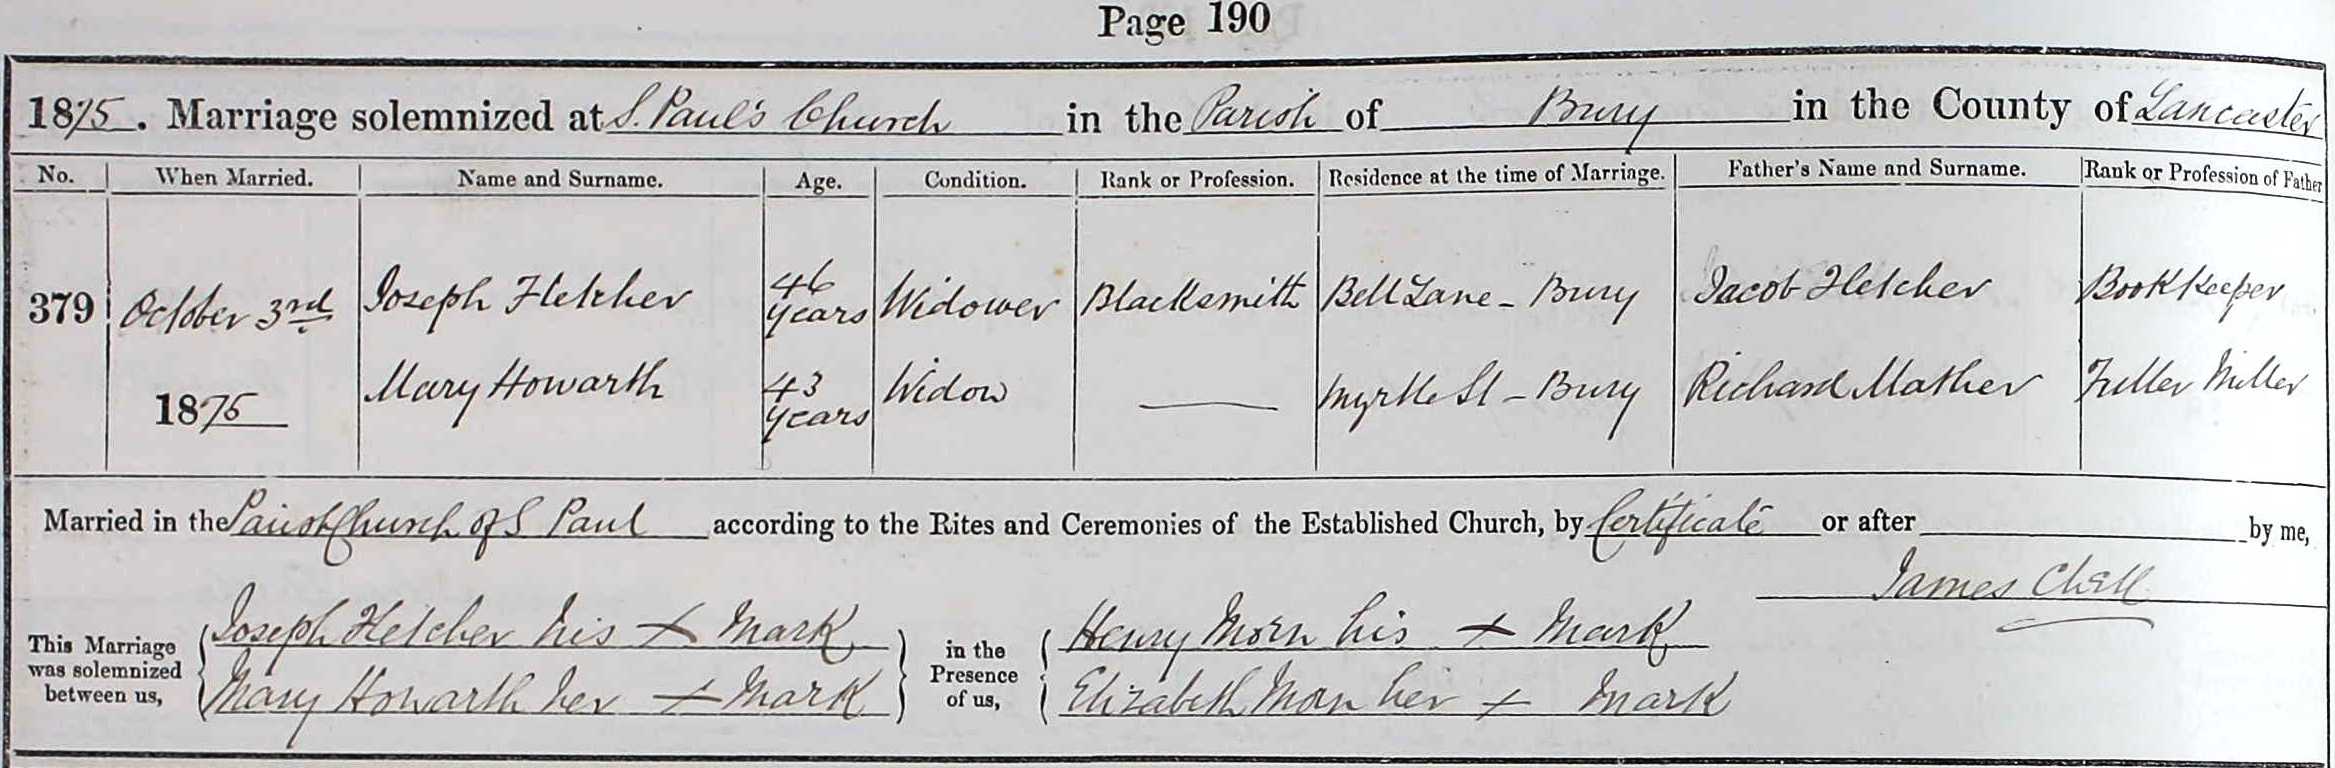 Page 190
1875. Marriage solemnized at S. Paul's Church in the Parish of Bury in the County of Lancaster
No. When Married. Name and Surname. Age. Condition. Rank or Profession. Residence at the time of Marriage. Father's Name and Surname. Rank or Profession of Father
379 October 3rd Joseph Fletcher 46 years Widower Blacksmith Bell Lane - Bury Jacob Fletcher Book Keeper
1875 Mary Howarth 43 years Widow Myrtle St - Bury Richard Mather Fuller Miller
Married in the Parish Church of S Paul according to the Rites and Ceremonies of the Established Church, by Certificate or after by me,
James Chell
This Marriage was solemnized between us, Joseph Fletcher his + Mark in the Presence of us, Henry his + Mark
Mary Howarth her + Mark Elizabeth her + Mark